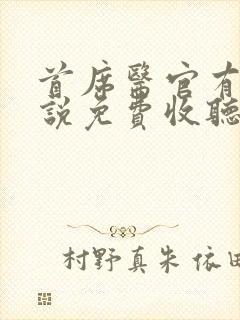 首席醫官有
說免費收聽
村野真朱 依田